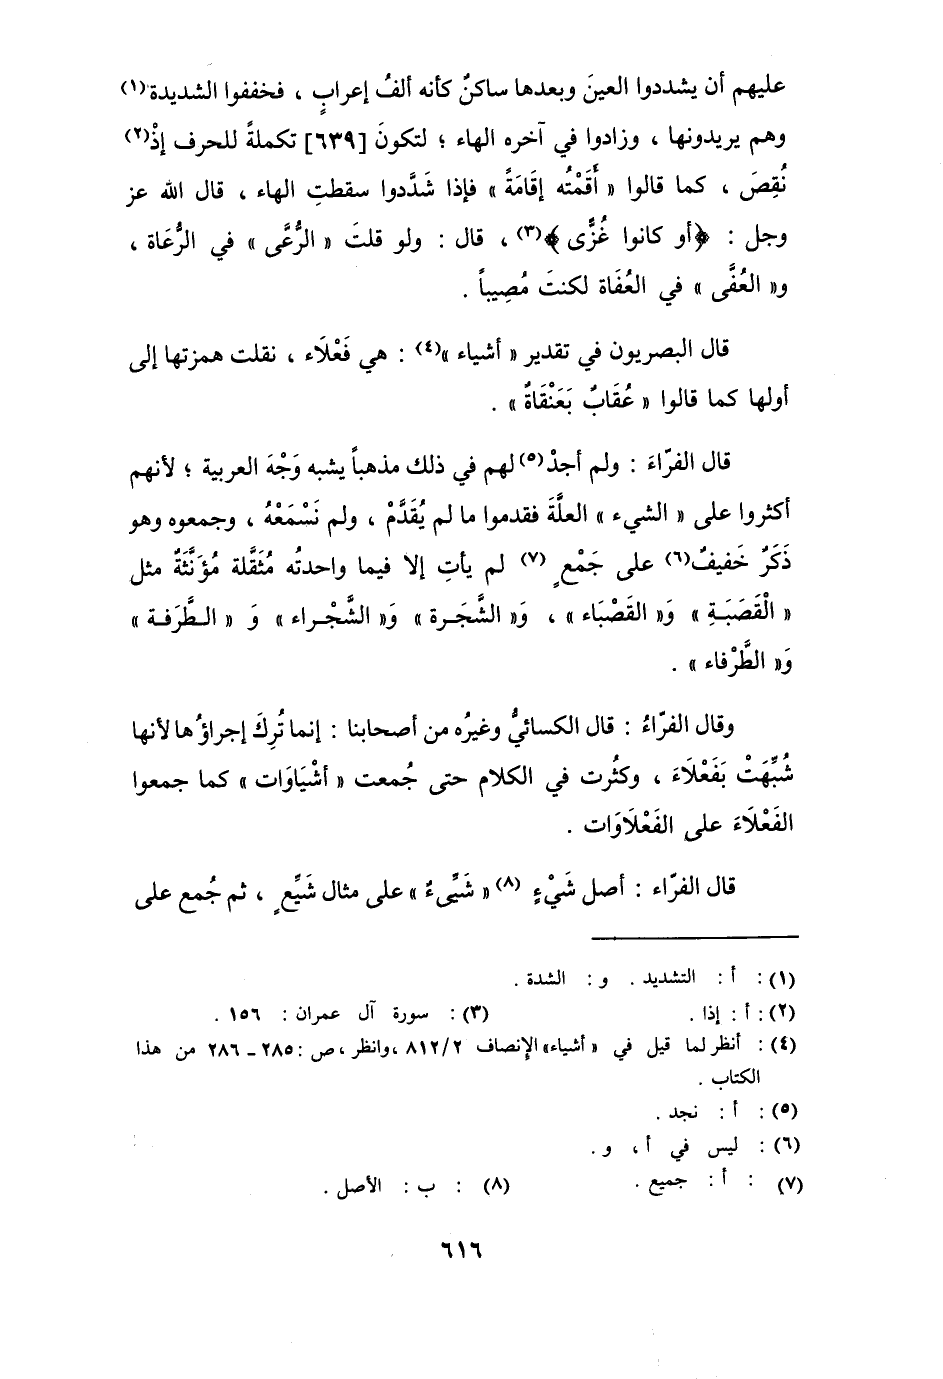 عليهم أن يشددوا العينَ وبعدها ساكنٌ كأنه ألفُ إعرابٍ ، فخففوا الشديدة(١)
وهم يريدونها ، وزادوا في آخره الهاء ؛ لتكونَ [٦٣٩] تكملةً للحرف إذْ(٢)
نُقِصَ ، كما قالوا « أَقَمْتُه إقَامَةً » فإذا شَدَّدوا سقطتِ الهاء ، قال الله عز
وجل : ﴿أو كانوا غُزًّى﴾(٣) ، قال : ولو قلتَ « الرُّعَّى » في الرُّعَاة ،
و« العُفَّى » في العُفَاة لكنتَ مُصِيباً .
قال البصريون في تقدير « أشياء »(٤) : هي فَعْلَاء ، نقلت همزتها إلى
أولها كما قالوا « عُقَابٌ بَعَنْقَاةٌ » .
قال الفرّاءَ : ولم أجدْ(٥) لهم في ذلك مذهباً يشبه وَجْهَ العربية ؛ لأنهم
أكثروا على « الشيء » العلَّةَ فقدموا ما لم يُقَدَّمْ ، ولم نَسْمَعْهُ ، وجمعوه وهو
ذَكَرٌ خَفيفٌ(٦) على جَمْعٍ (٧) لم يأتِ إلا فيما واحدتُه مُثَقَّلة مُؤَنَّثَةٌ مثل
« الْقَصَبَةِ » وَ« القَصْبَاء » ، وَ« الشَّجَرة » وَ« الشَّجْراء » وَ « الطَّرَفة »
وَ« الطَّرْفاء » .
وقال الفرّاءُ : قال الكسائيُّ وغيرُه من أصحابنا : إنما تُرِكَ إجراؤُها لأنها
شُبِّهَتْ بَفَعْلَاءَ ، وكثُرت في الكلام حتى جُمعت « أشْيَاوَات » كما جمعوا
الفَعْلَاءَ على الفَعْلَاوَات .
قال الفرّاء : أصل شَيْءٍ (٨) « شَيِّىءٌ » على مثال شَيِّعٍ ، ثم جُمع على
(١) : أ : التشديد . و : الشدة .
(٢) : أ : إذا . (٣) : سورة آل عمران : ١٥٦ .
(٤) : أنظر لما قيل في « أشياء» الإنصاف ٨١٢/٢ ،وانظر ،ص :٢٨٥ـ ٢٨٦ من هذا
الكتاب .
(٥) : أ : نجد .
(٦) : ليس في أ ، و .
(٧) : أ : جميع . (٨) : ب : الأصل .
٦١٦